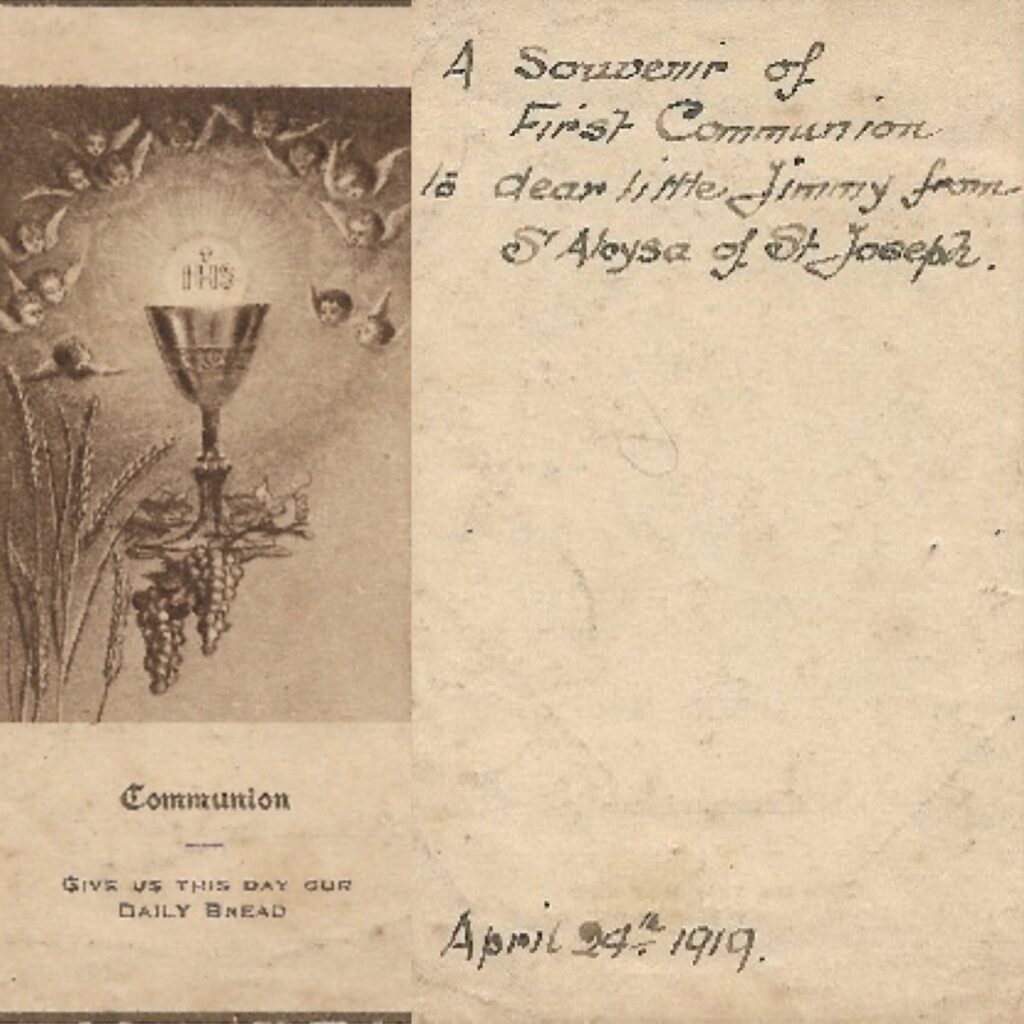 IHS
Communion
GIVE US THIS DAY OUR
DAILY BREAD
A Souvenir of
First Communion
to dear little Jimmy from
Sr Aloysa of St Joseph.
April 24th 1919.